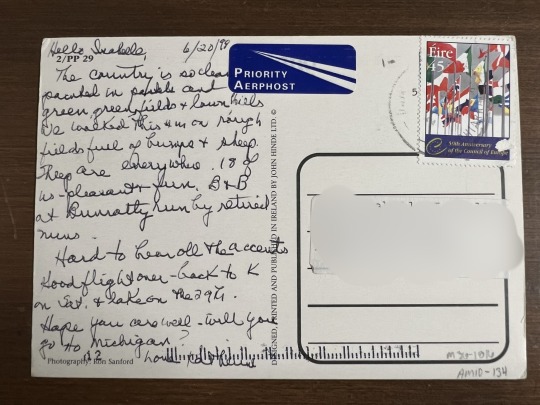 Hello Isabela, 6/20/99
2/PP 29
The country is so clean
painted in pastels and
green green fields & lawn hills
We walked this a.m on rough
fields full of bumps & sheep.
They are everywhere. 18 of
us - pleasant & fun. B & B
at Bunratty run by retired
nuns.
Hard to hear all the accents
Good flight over - back to K
on Sat. & lake on the 29th.
Hope you are well - will you
go to Michigan?
Love
Photography: Ron Sanford
PRIORITY
AERPHOST
Éire
45
50th Anniversary
of the Council of Europe
DESIGNED, PRINTED AND PUBLISHED IN IRELAND BY JOHN HINDE LTD. ©
AMID-134